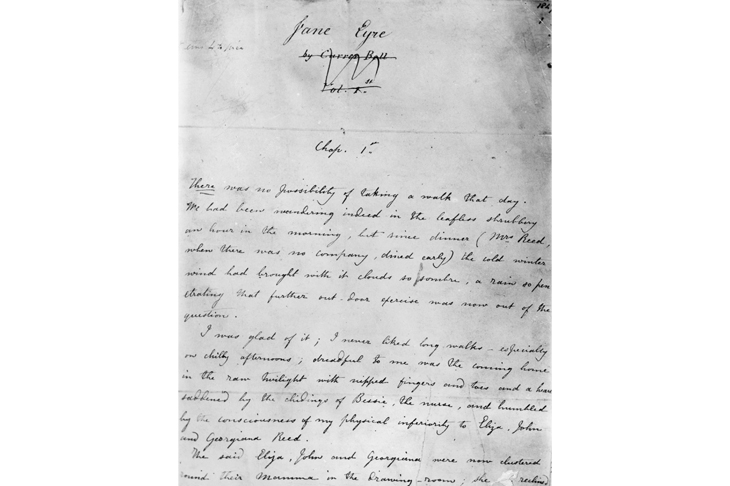 Jane Eyre
by Currer Bell
Vol. 1st
Chap. 1st
There was no possibility of taking a walk that day.
We had been wandering indeed in the leafless shrubbery
an hour in the morning, but since dinner (Mrs Reed,
when there was no company, dined early) the cold winter
wind had brought with it clouds so sombre, a rain so pene
trating that further out-door exercise was now out of the
question.
I was glad of it; I never liked long walks – especially
on chilly afternoons; dreadful to me was the coming home
in the raw twilight with nipped fingers and toes and a heart
saddened by the chidings of Bessie, the nurse, and humbled
by the consciousness of my physical inferiority to Eliza, John
and Georgiana Reed.
The said Eliza, John and Georgiana were now clustered
round their Mamma in the drawing-room; she reclined